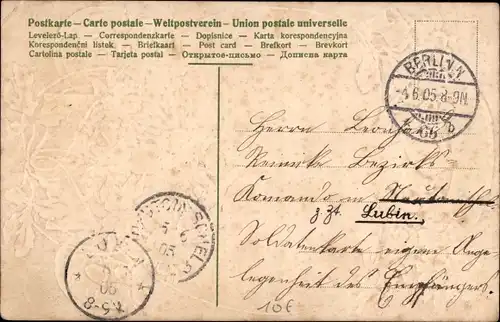 Postkarte – Carte postale – Weltpostverein – Union postale universelle
Levelező-Lap. — Correspondenzkarte — Dopisnice — Karta korespondencyjna
Korespondenční lístek. — Briefkaart — Post card — Brefkort — Brevkort
Cartolina postale — Tarjeta postal — Открытое-письмо — Дописна карта
BERLIN N
-4.6.05.8-9N
Herrn Leonhard
Bezirks
Komando in
z. Zt. Lubin.
Soldatenkarte eigene Ange-
legenheit des Empfängers.
10€